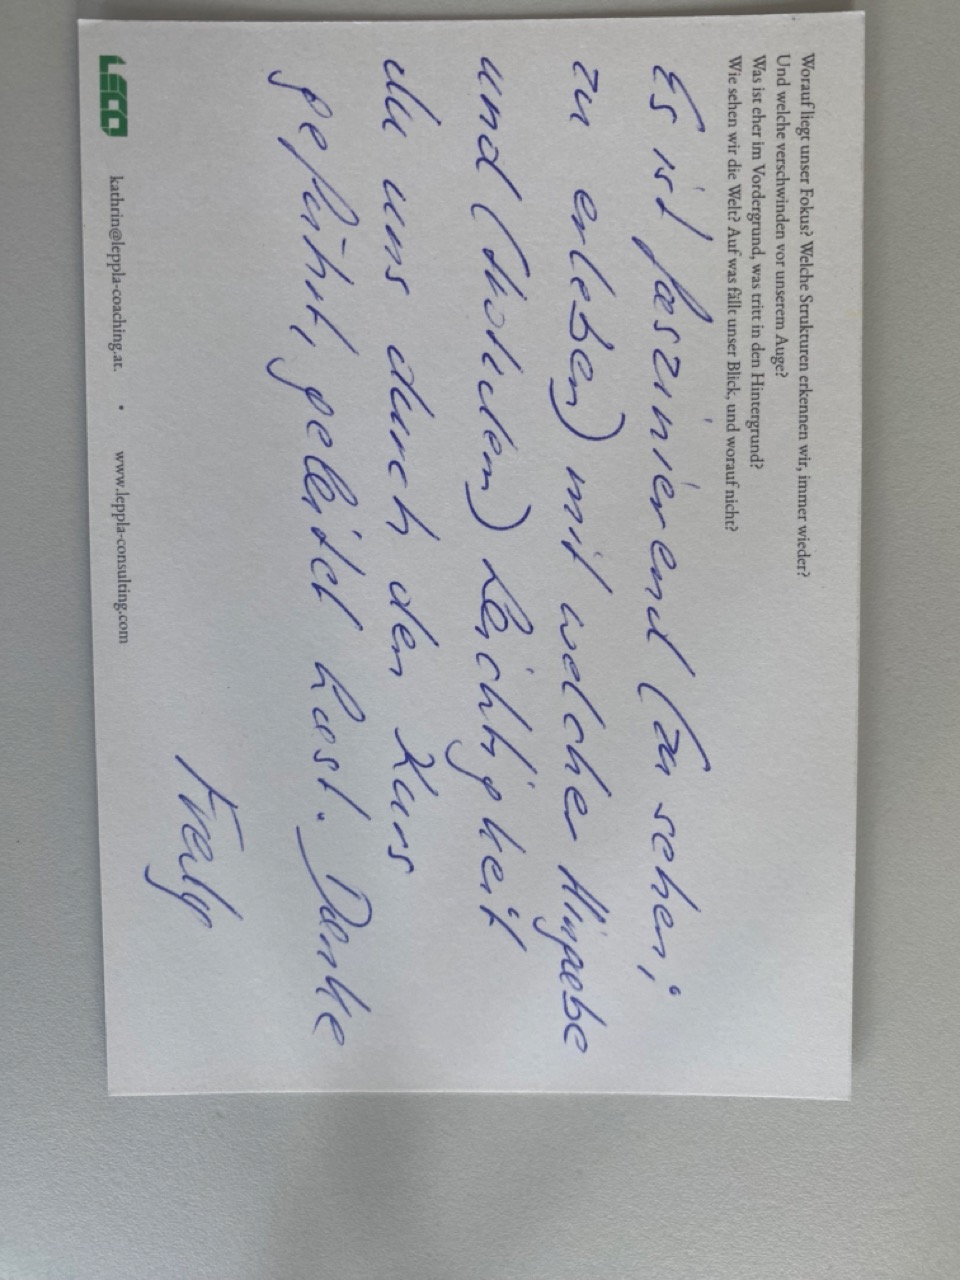 Worauf liegt unser Fokus? Welche Strukturen erkennen wir, immer wieder?
Und welche verschwinden vor unserem Auge?
Was ist eher im Vordergrund, was tritt in den Hintergrund?
Wie sehen wir die Welt? Auf was fällt unser Blick, und worauf nicht?
Es ist faszinierend (zu sehen;
zu erleben) mit welcher Hingabe
und (trotzdem) Leichtigkeit
du uns durch den Kurs
geführt, geleitet hast. Danke
LECO kathrin@leppla-coaching.at. • www.leppla-consulting.com